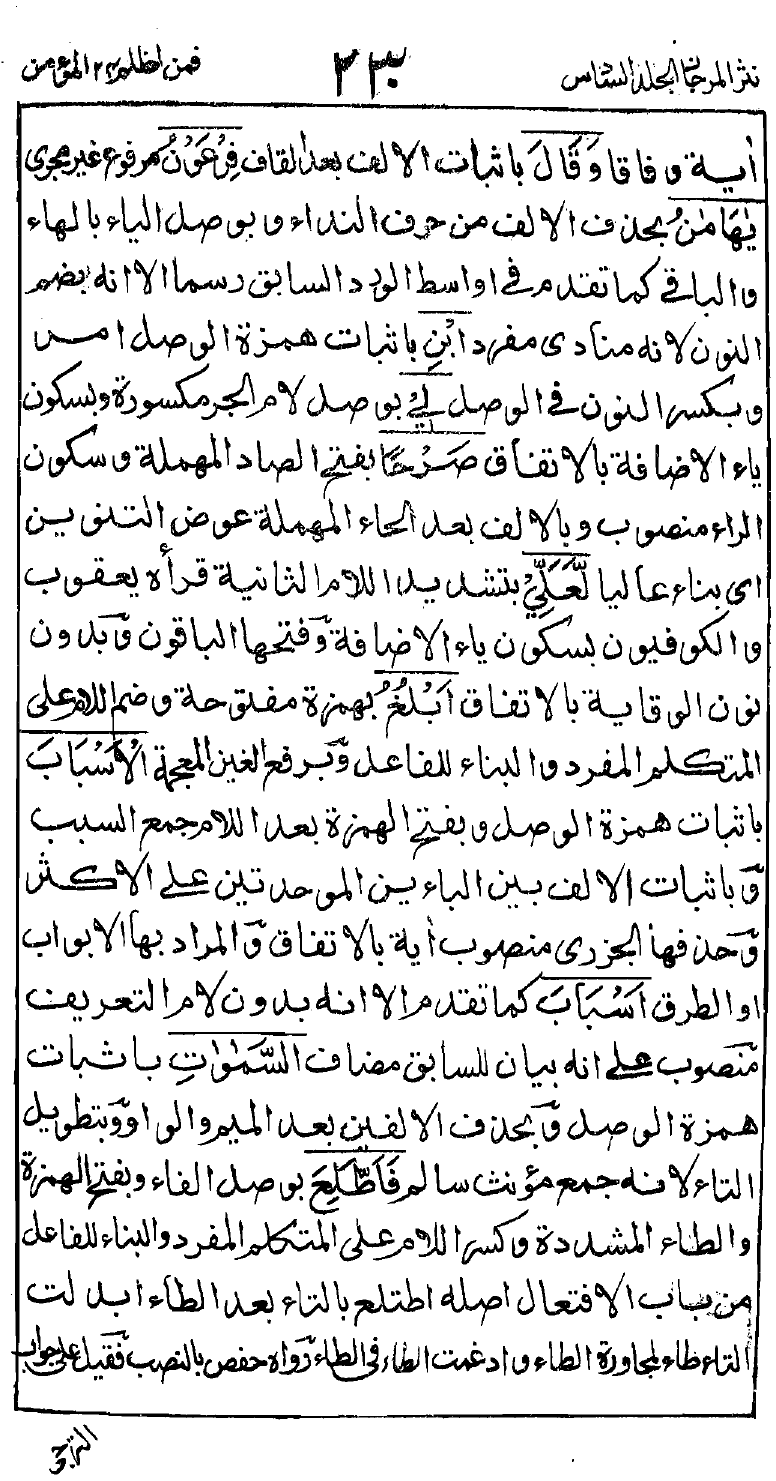 نثر المرجان الجلد السادس ٢٣٠ فمن اظلم ٢٤ المؤمن
أية وفاقا وَقَالَ باثبات الالف بعد القاف فِرْعَوْنُ مرفوع غير مجرى
يٰهَامٰنُ بحذف الالف من حرف النداء وبوصل الياء بالهاء
والباقي كما تقدم في اواسط الورد السابق رسما الا انه بضم
النون لانه منادى مفرد ابْنِ باثبات همزة الوصل امر
وبكسر النون في الوصل لِيْ بوصل لام الجر مكسورة وبسكون
ياء الاضافة بالاتفاق صَرْحًا بفتح الصاد المهملة وسكون
الراء منصوب وبالالف بعد الحاء المهملة عوض التنوين
اى بناء عاليا لَّعَلِّيْ بتشديد اللام الثانية قرأه يعقوب
والكوفيون بسكون ياء الاضافة وفتحها الباقون وبدون
نون الوقاية بالاتفاق أَبْلُغُ بهمزة مفتوحة وضم اللام على
المتكلم المفرد والبناء للفاعل وبرفع الغين المعجمة الْأَسْبَابَ
باثبات همزة الوصل وبفتح الهمزة بعد اللام جمع السبب
وباثبات الالف بين البائين الموحدتين على الاكثر
وحذفها الجزرى منصوب أية بالاتفاق والمراد بها الابواب
او الطرق أَسْبَابَ كما تقدم الا انه بدون لام التعريف
منصوب على انه بيان للسابق مضاف السَّمٰوٰتِ باثبات
همزة الوصل وبحذف الالفين بعد الميم والواو وبتطويل
التاء لانه جمع مؤنث سالم فَأَطَّلِعَ بوصل الفاء وبفتح الهمزة
والطاء المشددة وكسر اللام على المتكلم المفرد والبناء للفاعل
من باب الافتعال اصله اطتلع بالتاء بعد الطاء ابدلت
التاء طاء لمجاورة الطاء وادغمت الطاء فى الطاء رواه حفص بالنصب فقيل على جواب